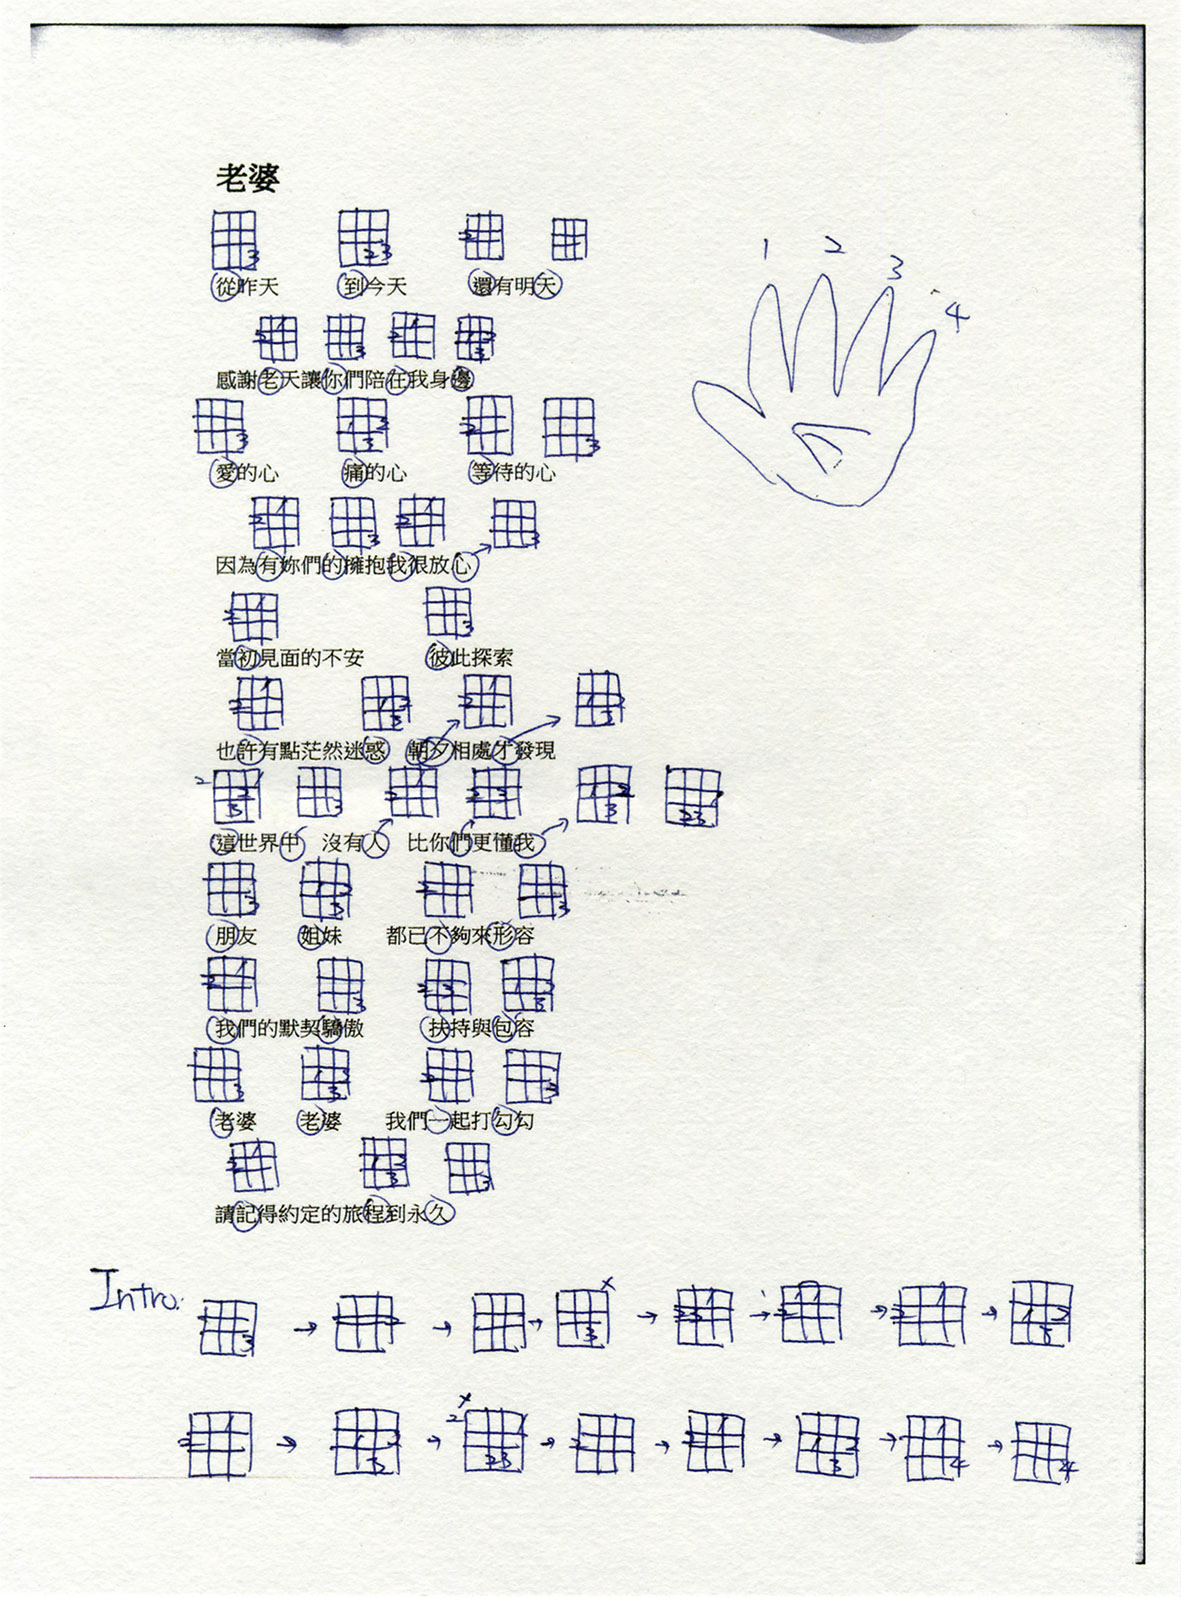 老婆
從昨天 到今天 還有明天
感謝老天讓你們陪在我身邊
愛的心 痛的心 等待的心
因為有妳們的擁抱我很放心
當初見面的不安 彼此探索
也許有點茫然迷惑 朝夕相處才發現
這世界中 沒有人 比你們更懂我
朋友 姐妹 都已不夠來形容
我們的默契驕傲 扶持與包容
老婆 老婆 我們一起打勾勾
請記得約定的旅程到永久
1 2 3 4
Intro: